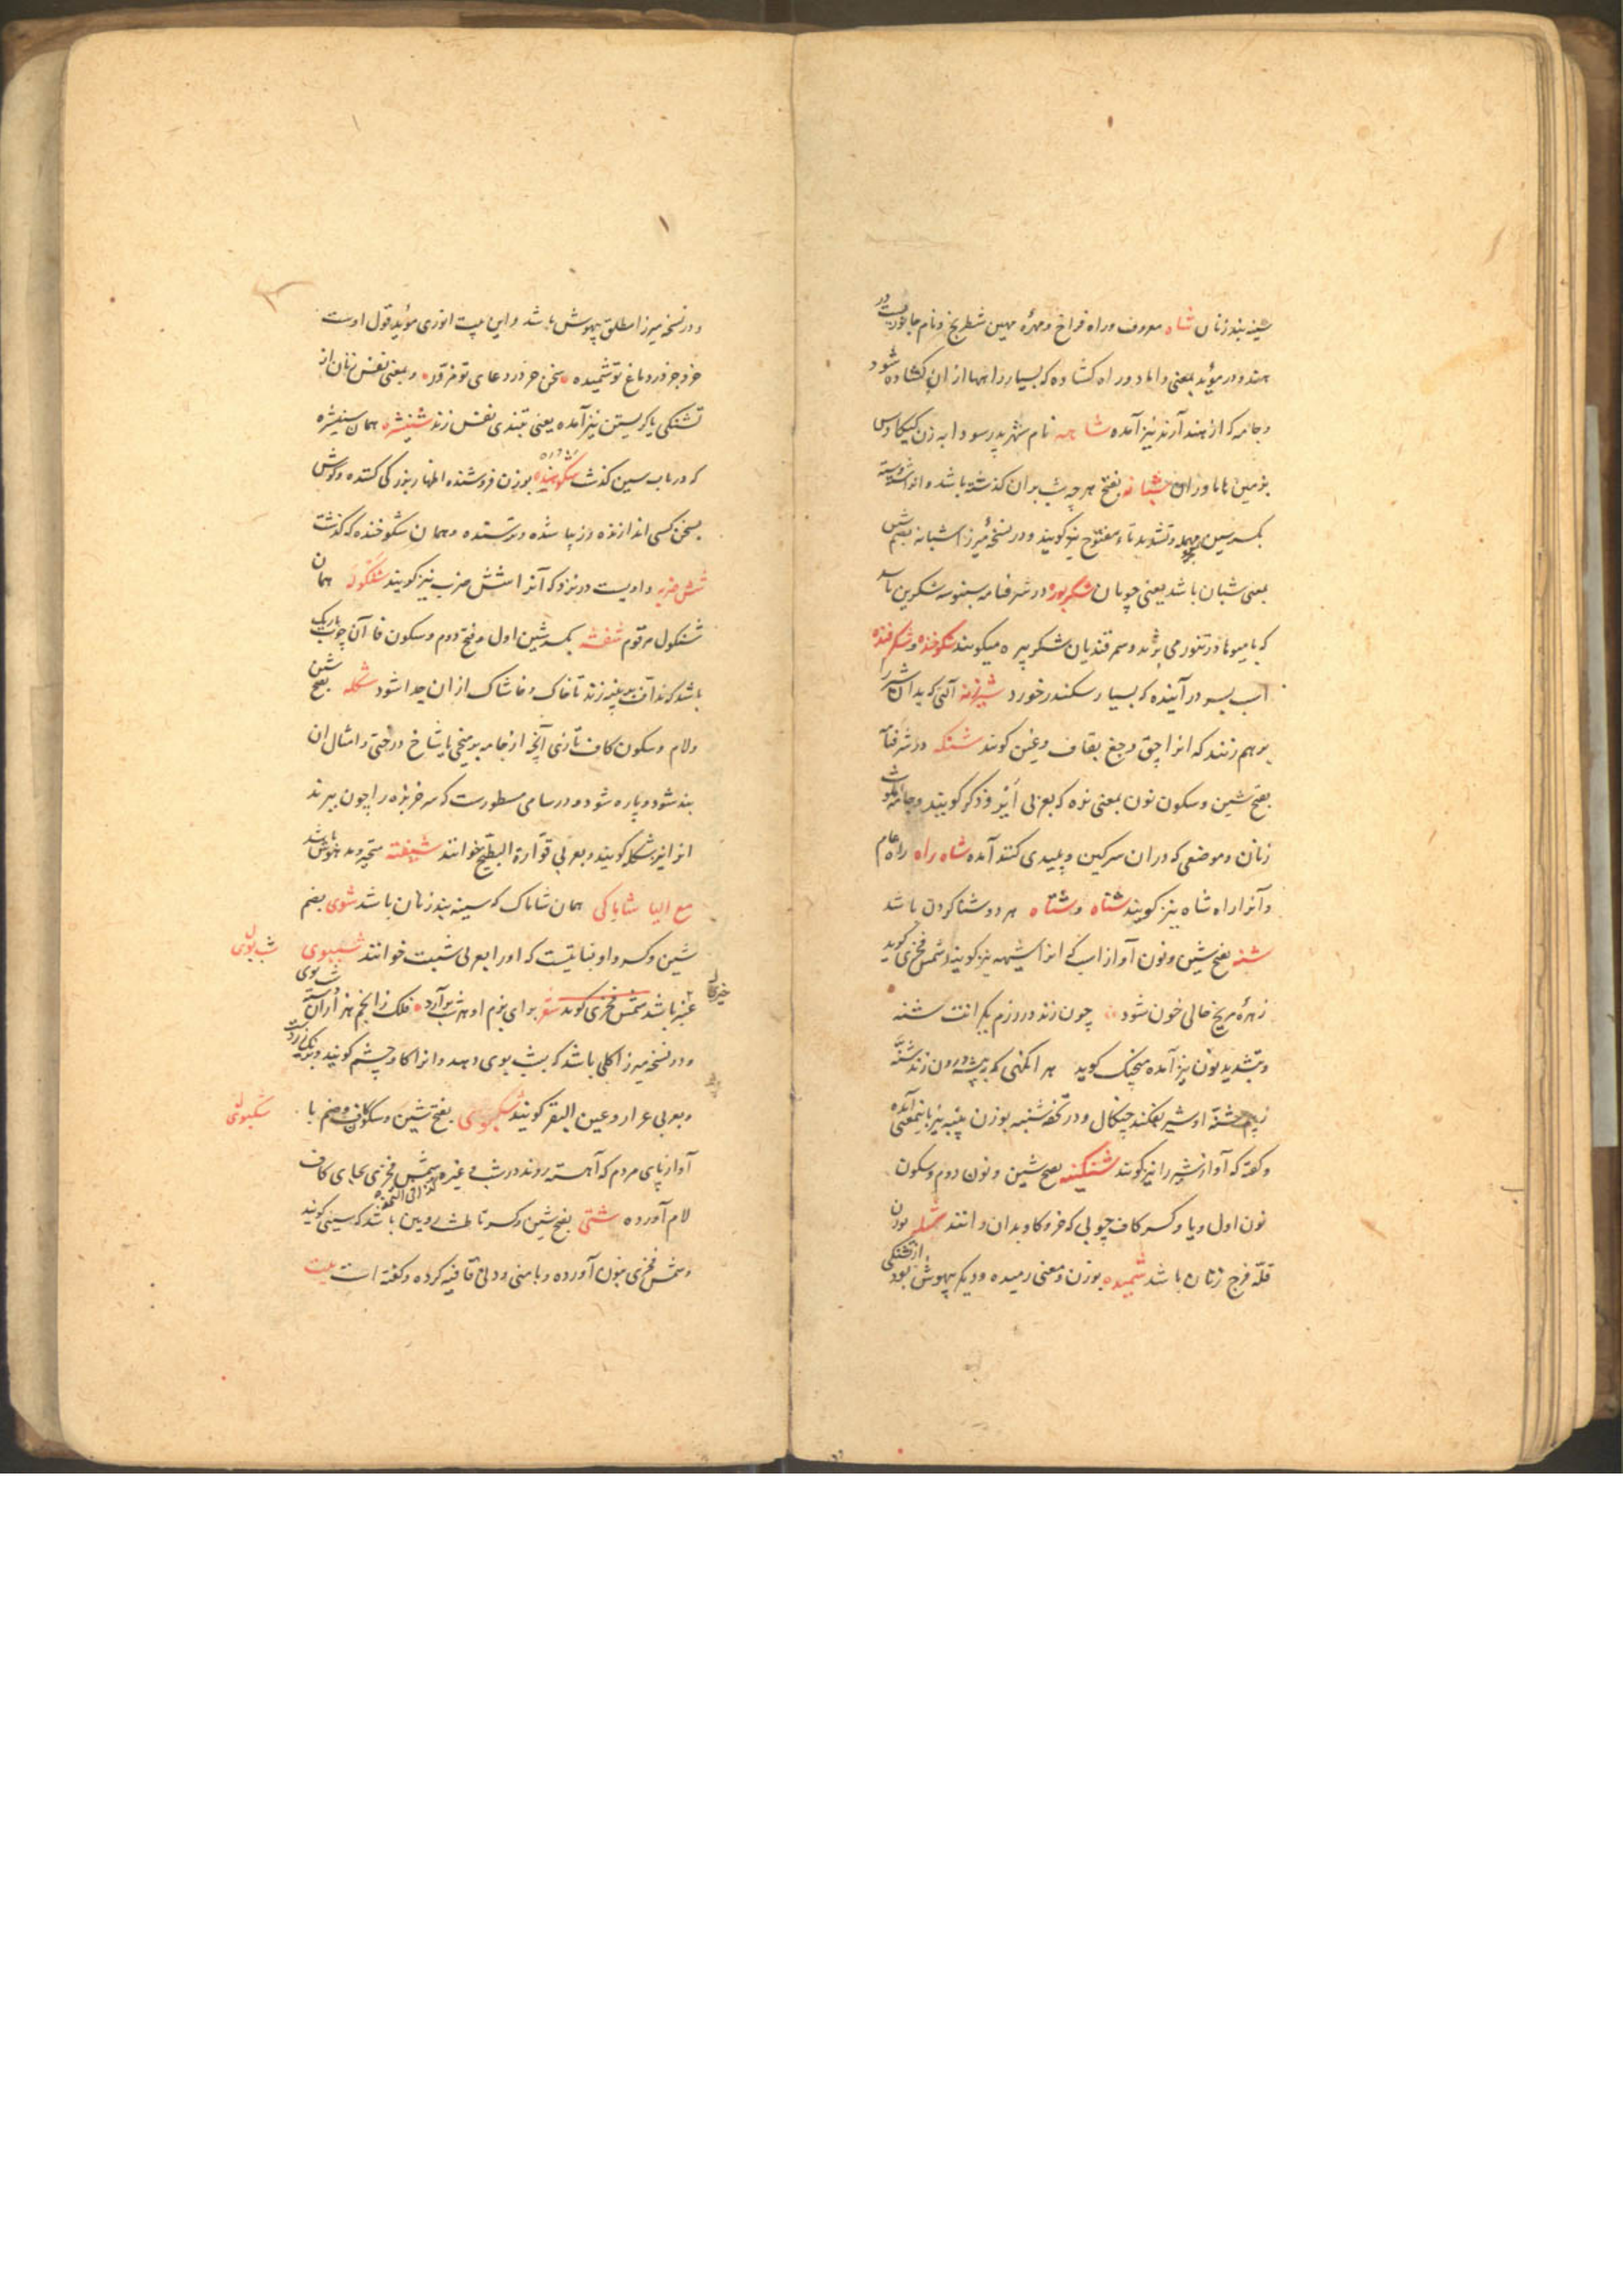 سینه بند زنان شاه معروف و راه فراخ و مهرهٔ مهین شطرنج و نام جانوریست در
هند و در مؤید بمعنی داماد و راه کشاده که بسیار راهها از ان کشاده شود
و جامه که از هند آرند نیز آمده شاهه نام شهر پدر سودابه زن کیکاوس
بزمین هاماوران شبانه بفتح هر چه شب بران کذشته باشد و انرا
بکسر سین مهمله و تشدید تاء مفتوح نیز کویند و در نسخهٔ میرزا شبانه بضم شین
بمعنی شبان باشد یعنی چوپان شکربوره در شرفنامه سنبوسه شکرین باشد
که با میوها در تنور می پزند و سمرقندیان شکر پیره میکویند شکوخنده و شکرفنده
اسب بسر در آینده که بسیار سکندر خورد شیرزنه آلتی که بدان شیر را
بر هم زنند که انرا چق و چغ بقاف و غین کویند شنکه در شرفنامه
بفتح شین و سکون نون بمعنی نره که بعربی اَیر و ذکر کویند و جامه
زنان و موضعی که در ان سرکین و پلیدی کنند آمده شاه راه راه عام
و آنرا راه شاه نیز کویند شناه و شناه هر دو شنا کردن باشد
شنه بفتح شین و نون آواز اسب که انرا شیهه نیز کویند شمس فخری کوید
زهرهٔ مریخ خالی خون شود چون زند در رزم یکرانت شنه
و بتشدید نون نیز آمده منجیک کوید هر انکهی که به بیشه درون زند شنّه
ز بیم شنّهٔ او شیر بفکند چنکال و در تحفه شنبه بوزن پنبه نیز باینمعنی آمده
و کفته که آواز شیر را نیز کویند شنکینه بفتح شین و نون دوم و سکون
نون اول و یا و کسر کاف چوبی که خر و کاو بدان رانند شله بوزن
قلّه فرج زنان باشد شمیده بوزن و معنی رمیده و دیکر بیهوش بود از تشنکی
و در نسخه میرزا مطلق بیهوش باشد و این بیت انوری مؤید قول اوست
خرد جز در دماغ تو شمیده سخن جز در دعای تو مزوّر و بمعنی نفس زنان از
تشنکی یا کریستن نیز آمده یعنی بتندی نفس زند شنبشره همان
که در باب سین کذشت شکهنده بوزن فروشنده اظهار بزرکی کننده و کوش
بسخن کسی اندازنده و زیبا شده و ترسنده و همان شکوخنده که کذشت
شش ضربه داویست در نرد که آنرا شش ضرب نیز کویند شنکوله همان
شنکول مرقوم شفشه بکسر شین اول و فتح دوم و سکون فا آن چوب باریک
باشد که نداف بر پنبه زند تا خاک و خاشاک از ان جدا شود شکله بفتح شین
و لام و سکون کاف تازی آنچه از جامه بر میخی یا شاخ درختی و امثال ان
بند شود و پاره شود و در سامی مسطورست که سر خربزه را چون ببرند
انرا نیز شکله کویند و بعربی قوّارة البطیخ خوانند شیفته متحیر و مدهوش باشد
مع الیا شاباکی همان شاماک که سینه بند زنان باشد شوی بضم
شین و کسر واو نباتیست که او را بعربی شبت خوانند شببوی شب بوی
عنبر باشد شمس فخری کوید شعر برای بزم او هر شب بر آرد فلک ز انجم هزاران دسته شب بوی
و در نسخه میرزا کلی باشد که بشب بوی دهد و انرا کاو چشم کویند
و بعربی عرار و عین البقر کویند شکبوی بفتح شین و سکون کاف و ضم با شکبوی
آواز پای مردم که آهسته روند در شب و غیره شمس فخری بجای کاف
لام آورده شتی بفتح شین و کسر تا طشت رویین باشد که سینی کویند
و شمس فخری بنون آورده و با منی و دنی قافیه کرده و کفته است بیت